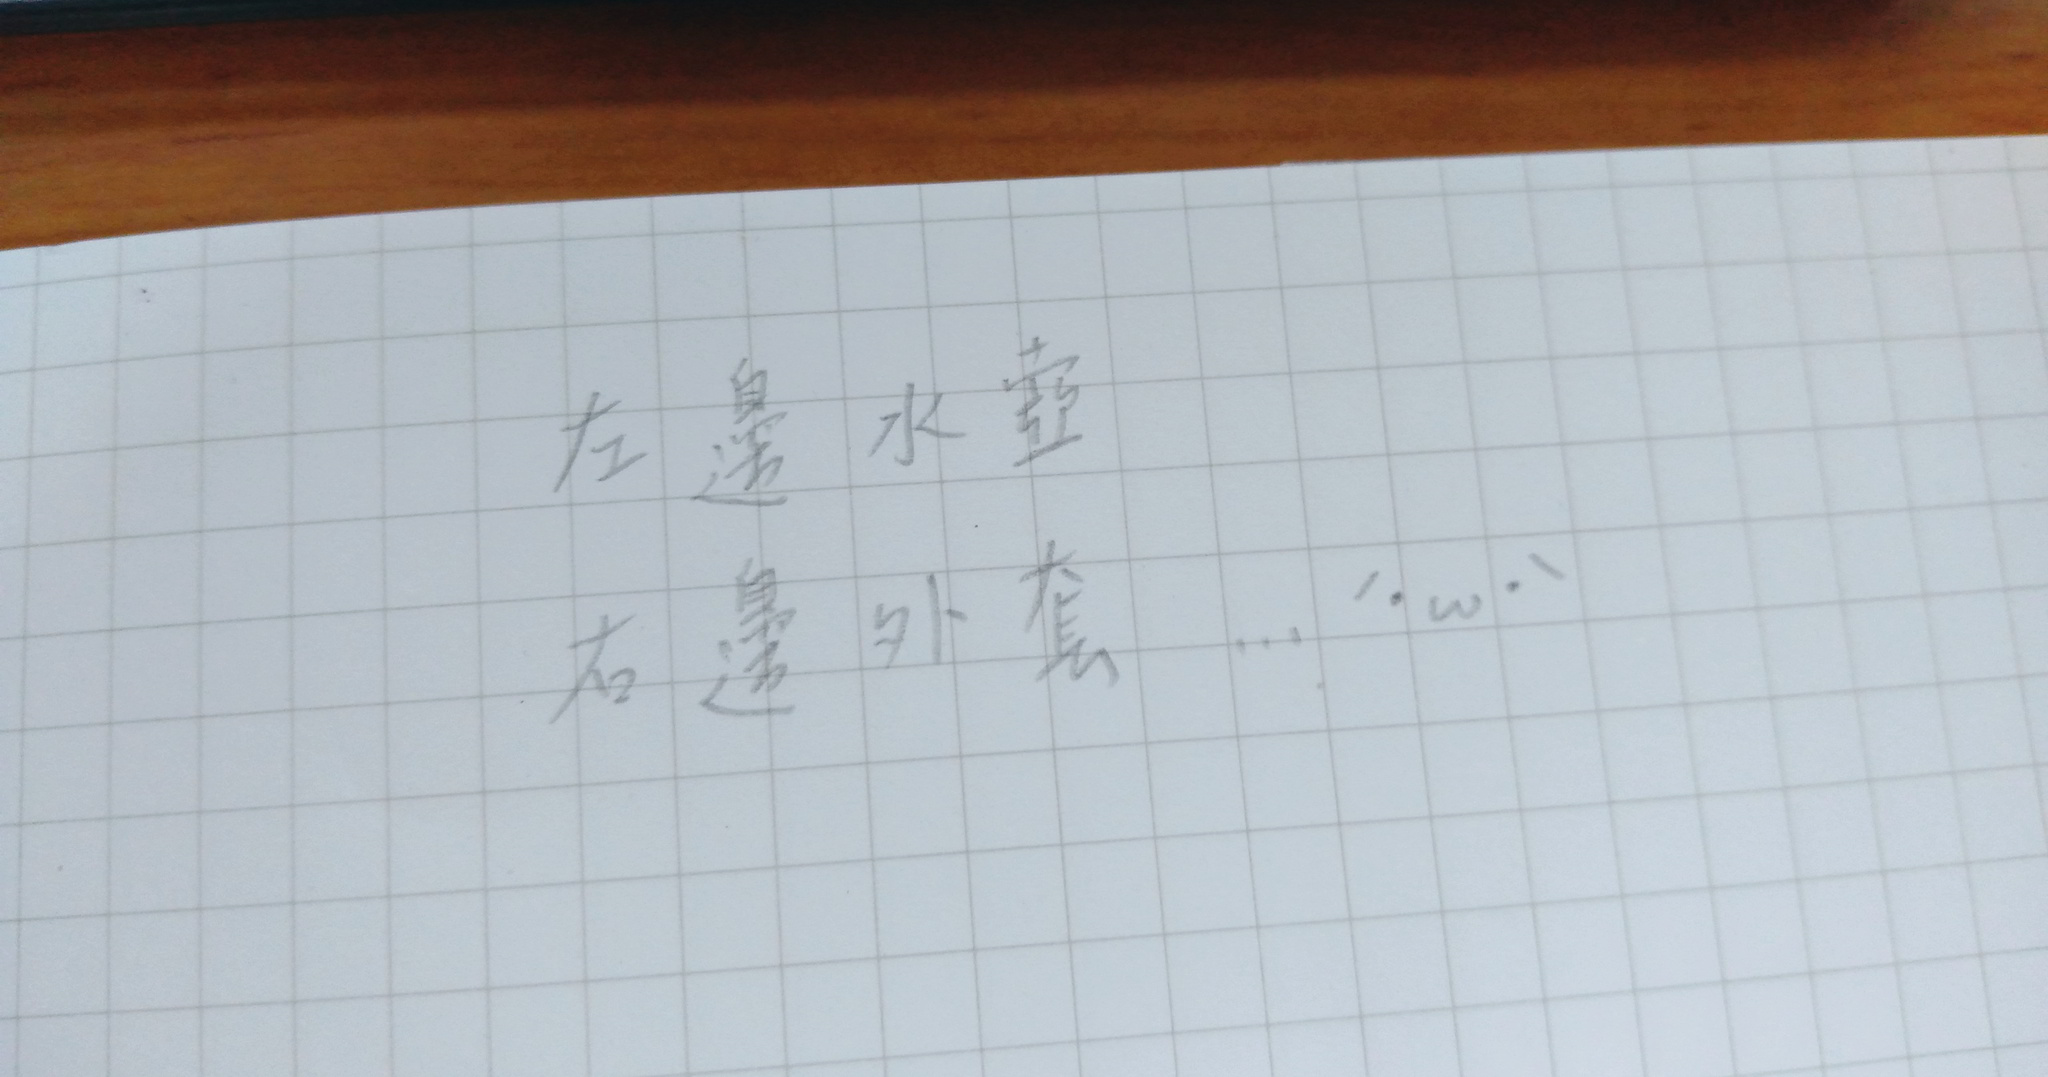 左邊水壺
右邊外套 ... ´•ω•`